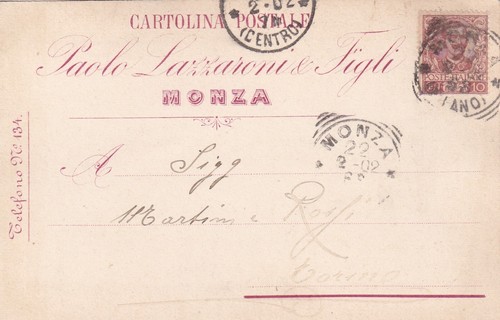 CARTOLINA POSTALE
2-02
(CENTRO)
POSTE ITALIANE
10
Paolo Lazzaroni & Figli
MONZA
Telefono No. 134.
MONZA
22
2-02
A Sigg
Martini e Rossi
Torino